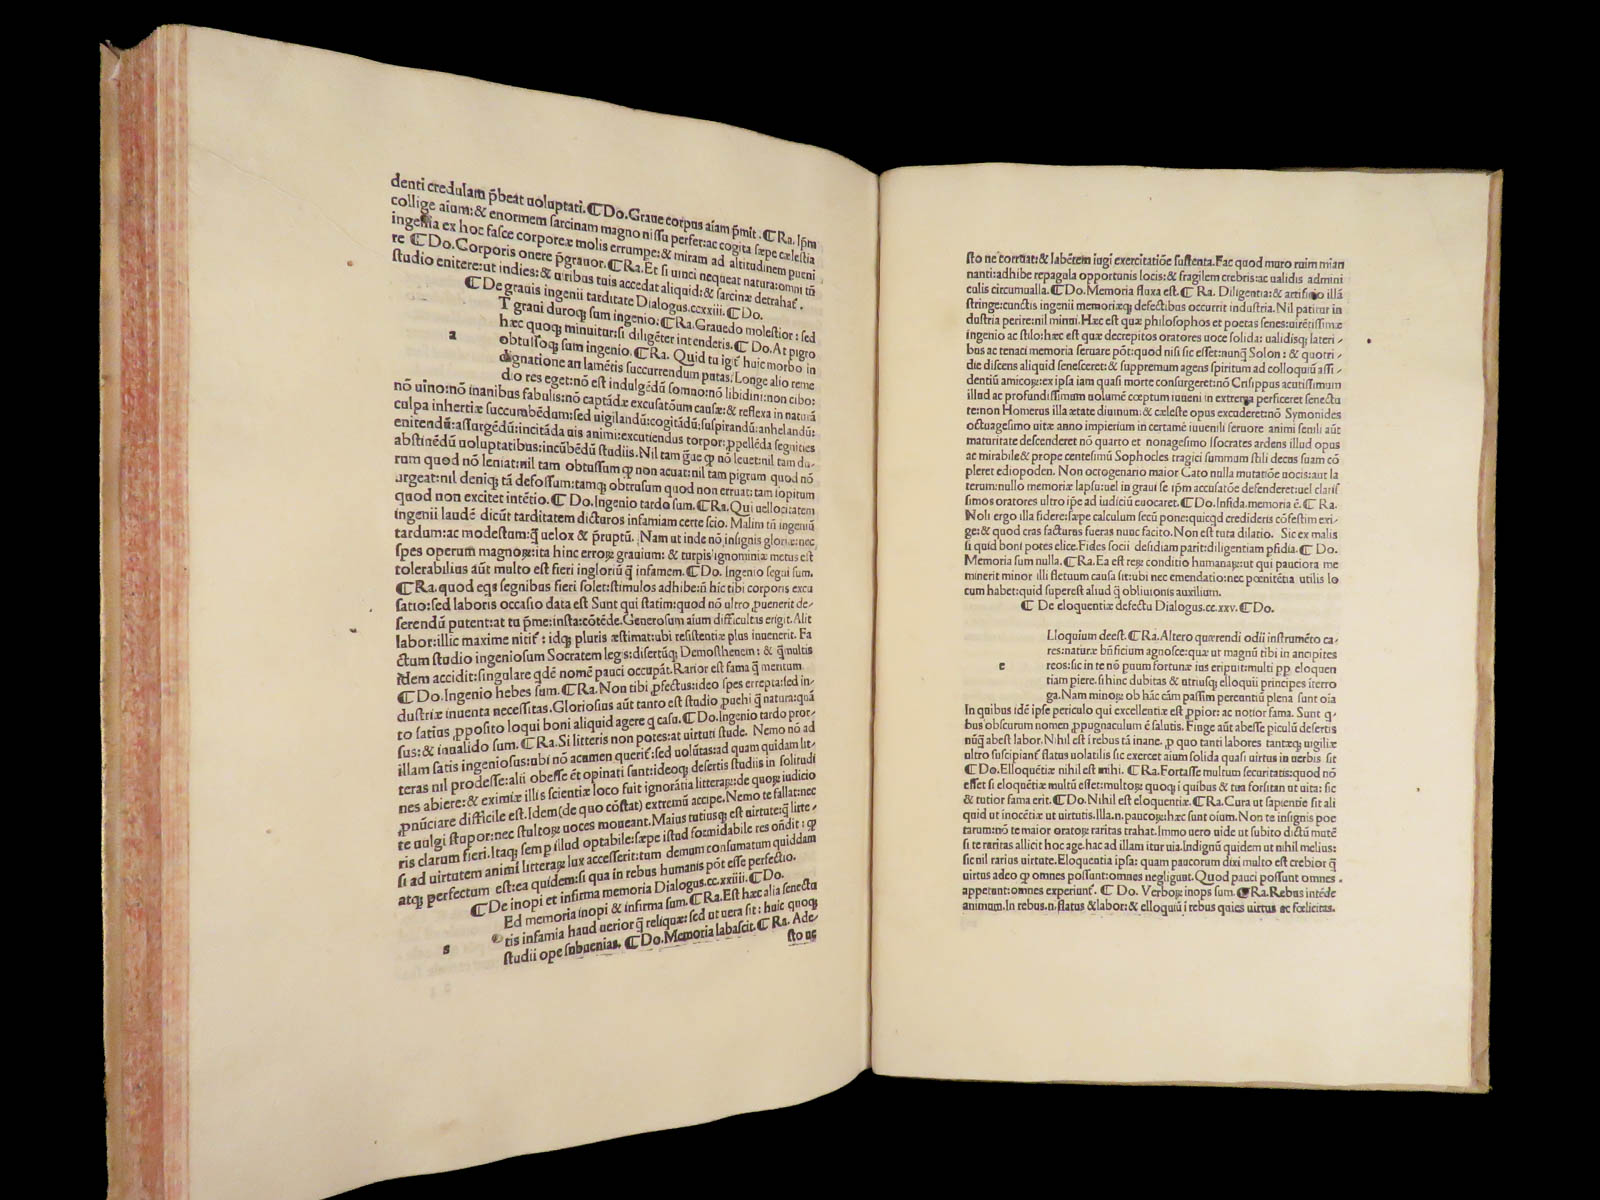 denti credulam p̄beat uoluptati. ⁋Do. Graue corpus aīam p̄mit. ⁋Ra. Ip̄m
collige aium: & enormem sarcinam magno nissu perfer: ac cogita sæpe cælestia
ingenia ex hoc fasce corporeæ molis errumpe: & miram ad altitudinem pueni
re ⁋Do. Corporis onere p̄grauor. ⁋Ra. Et si uinci nequeat natura: omni tn̄
studio enitere: ut indies: & uiribus tuis accedat aliquid: & sarcinæ detrahat̄.
⁋De grauis ingenii tarditate Dialogus. ccxxiii. ⁋Do.
T graui duroq; sum ingenio: ⁋Ra. Grauedo molestior: sed
hæc quoq; minuitur: si diligēter intenderis. ⁋Do. At pigro
a
obtussoq; sum ingenio. ⁋Ra. Quid tu igit̄ huic morbo in
dignatione an lamētis succurrendum putas. Longe alio reme
dio res eget: nō est indulgēdū somno: nō libidini: non cibo:
nō uino: nō inanibus fabulis: nō captādæ excusatōum causæ: & reflexa in naturā
culpa inhertiæ succumbēdum: sed uigilandū: cogitādū: suspirandū: anhelandū:
enitendū: assurgēdū: incitāda uis animi: excutiendus torpor: ꝓpellēda segnities
abstinēdū uoluptatibus: incūbēdū studiis. Nil tam ḡae qp nō leuet: nil tam du-
rum quod nō leniat: nil tam obtussum qp non acuat: nil tam pigrum quod nō
urgeat: nil deniq; tā defossum: tamq; obtrusum quod non erruat: tam sopitum
quod non excitet intētio. ⁋Do. Ingenio tardo sum. ⁋Ra. Qui uellocitatem
ingenii laudē dicūt tarditatem dicturos infamiam certe scio. Malim tn̄ ingeniū
tardum: ac modestum: q̄ uelox & p̄ruptū. Nam ut inde nō insignis gloriæ: nec
spes operum magnoꝝ: ita hinc erroꝝ grauium: & turpis ignominiæ metus est
tolerabilius aūt multo est fieri ingloriū q̄ infamem. ⁋Do. Ingenio segni sum.
⁋Ra. quod eq̄s segnibus fieri solet: stimulos adhibe: n̄ hic tibi corporis excu
satio: sed laboris occasio data est Sunt qui statim: quod nō ultro ꝓuenerit de-
serendū putent: at tu p̄me: insta: cōtēde. Generosum aīum difficultas erigit. Alit
labor: illic maxime nitit̄: idq; pluris æstimat: ubi resistentiæ plus inuenerit. Fa
ctum studio ingeniosum Socratem legis: disertūq; Demosthenem: & q̄multis
idem accidit: singulare qdē nomē pauci occupāt. Rarior est fama q̄ meritum
⁋Do. Ingenio hebes sum. ⁋Ra. Non tibi ꝓfectus: ideo spes errepta: sed in-
dustriæ inuenta necessitas. Gloriosius aūt tanto est studio ꝓuehi q̄ natura: quā
to satius ꝓposito loqui boni aliquid agere q casu. ⁋Do. Ingenio tardo pror-
sus: & inualido sum. ⁋Ra. Si litteris non potes: at uirtuti stude. Nemo nō ad
illam satis ingeniosus: ubi nō acumen querit̄: sed uolūtas: ad quam quidam lit-
teras nil prodesse: alii obesse ēt opinati sunt: ideoq; desertis studiis in solitudi
nes abiere: & eximiæ illis scientiæ loco fuit ignorātia litteraꝝ: de quoꝝ iudicio
ꝓnūciare difficile est. Idem (de quo cōstat) extremū accipe. Nemo te fallat: nec
te uulgi stupor: nec stultoꝝ uoces moueant. Maius tutiusq; est uirtute: q̄ litte-
ris clarum fieri. Itaq; semp illud optabile: sæpe istud formidabile res on̄dit: qp
si ad uirtutem animi litteraꝝ lux accesserit: tum demum consumatum quiddam
atq; perfectum est: ea quidem: si qua in rebus humanis pōt esse perfectio.
⁋De inopi et infirma memoria Dialogus. cc. xxiiii. ⁋Do.
Ed memoria inopi & infirma sum. ⁋Ra. Est hæc alia senectu
tis infamia haud uerior q̄ reliquæ: sed ut uera sit: huic quoq;
s
studii ope subuenias. ⁋Do. Memoria labascit. ⁋Ra. Ade-
sto ne
sto ne corruat: & labētem iugi exercitatiōe sustenta. Fac quod muro ruim mian
nanti: adhibe repagula opportunis locis: & fragilem crebris: ac ualidis admini
culis circumualla. ⁋Do. Memoria fluxa est. ⁋Ra. Diligentia: & artificio illā
stringe: cunctis ingenii memoriæq; defectibus occurrit industria. Nil patitur in
dustria perire: nil minui. Hæc est quæ philosophos et poetas senes: uirētissimæ
ingenio ac stilo: hæc est quæ decrepitos oratores uoce solida: ualidisq; lateri-
bus ac tenaci memoria seruare pōt: quod nisi sic esset: nunq̄ Solon: & quotri-
die discens aliquid senesceret: & suppremum agens spiritum ad colloquiū assi-
dentiū amicoꝝ: ex ipsa iam quasi morte consurgeret: nō Crisippus acutissimum
illud ac profundissimum uolumē cœptum iuueni in extrema perficeret senectu
te: non Homerus illa ætate diuinum: & cæleste opus excuderet: nō Symonides
octuagesimo uitæ anno impierium in certamē iuuenili feruore animi senili aūt
maturitate descenderet nō quarto et nonagesimo Isocrates ardens illud opus
ac mirabile & prope centesimū Sophocles tragici summum stili decus suam cō
pleret edipoden. Non octogenario maior Cato nulla mutatiōe uocis: aut la
terum: nullo memoriæ lapsu: uel in graui se ip̄m accusatōe defenderet: uel claris
simos oratores ultro ip̄e ad iudiciū euocaret. ⁋Do. Infida memoria ē. ⁋Ra.
Noli ergo illa fidere: sæpe calculum secū pone: quicqd credideris cōfestim exi-
ge: & quod cras facturus fueras nunc facito. Non est tuta dilatio. Sic ex malis
si quid boni potes elice. Fides socii desidiam parit: diligentiam pfidia. ⁋Do.
Memoria sum nulla. ⁋Ra. Ea est reꝝ conditio humanaꝝ: ut qui pauciora me
minerit minor illi fletuum causa sit: ubi nec emendatio: nec pœnitētia utilis lo
cum habet: quid superest aliud q̄ obliuionis auxilium.
⁋ De eloquentiæ defectu Dialogus. cc. xxv. ⁋Do.
Lloquium deest. ⁋Ra. Altero quærendi odii instrumēto ca-
res: naturæ bn̄ficium agnosce: quæ ut magnū tibi in ancipites
e
reos: sic in te nō puum fortunæ ius eripuit: multi pp eloquen
tiam piere. si hinc dubitas & utriusq; elloquii principes iterro
ga. Nam minoꝝ ob hāc cām passim pereuntiū plena sunt oīa
In quibus idē ipse periculo qui excellentiæ est ꝓpior: ac notior fama. Sunt q-
bus obscurum nomen ꝓpugnaculum ē salutis. Finge aūt abesse piculū desertis
nūq̄ abest labor. Nihil est ī rebus tā inane, p quo tanti labores tantæq; uigiliæ
ultro suscipiant̄ flatus uolatilis sic exercet aium solida quasi uirtus in uerbis sit
⁋Do. Elloquētiæ nihil est mihi. ⁋Ra. Fortasse multum securitatis: quod nō
esset si eloquētiæ multū esset: multoꝝ quoq; ī quibus & tua forsitan ut uita: sic
& tutior fama erit. ⁋Do. Nihil est eloquentiæ. ⁋Ra. Cura ut sapientiē sit ali
quid ut inocētiæ ut uirtutis. Illa. n. paucoꝝ: hæc sunt oium. Non te insignis poe
tarum: nō te maior oratoꝝ raritas trahat. Immo uero uide ut subito dictū mutē
si te raritas allicit hoc age. hac ad illam itur uia. Indignū quidem ut nihil melius:
sic nil rarius uirtute. Eloquentia ipsa: quam paucorum dixi multo est crebior q̄
uirtus adeo qp omnes possunt: omnes negligunt. Quod pauci possunt omnes
appetunt: omnes experiunt̄. ⁋Do. Verboꝝ inops sum. ⁋Ra. Rebus intēde
animum. In rebus. n. flatus & labor: & elloquiū ī rebus quies uirtus ac fœlicitas.